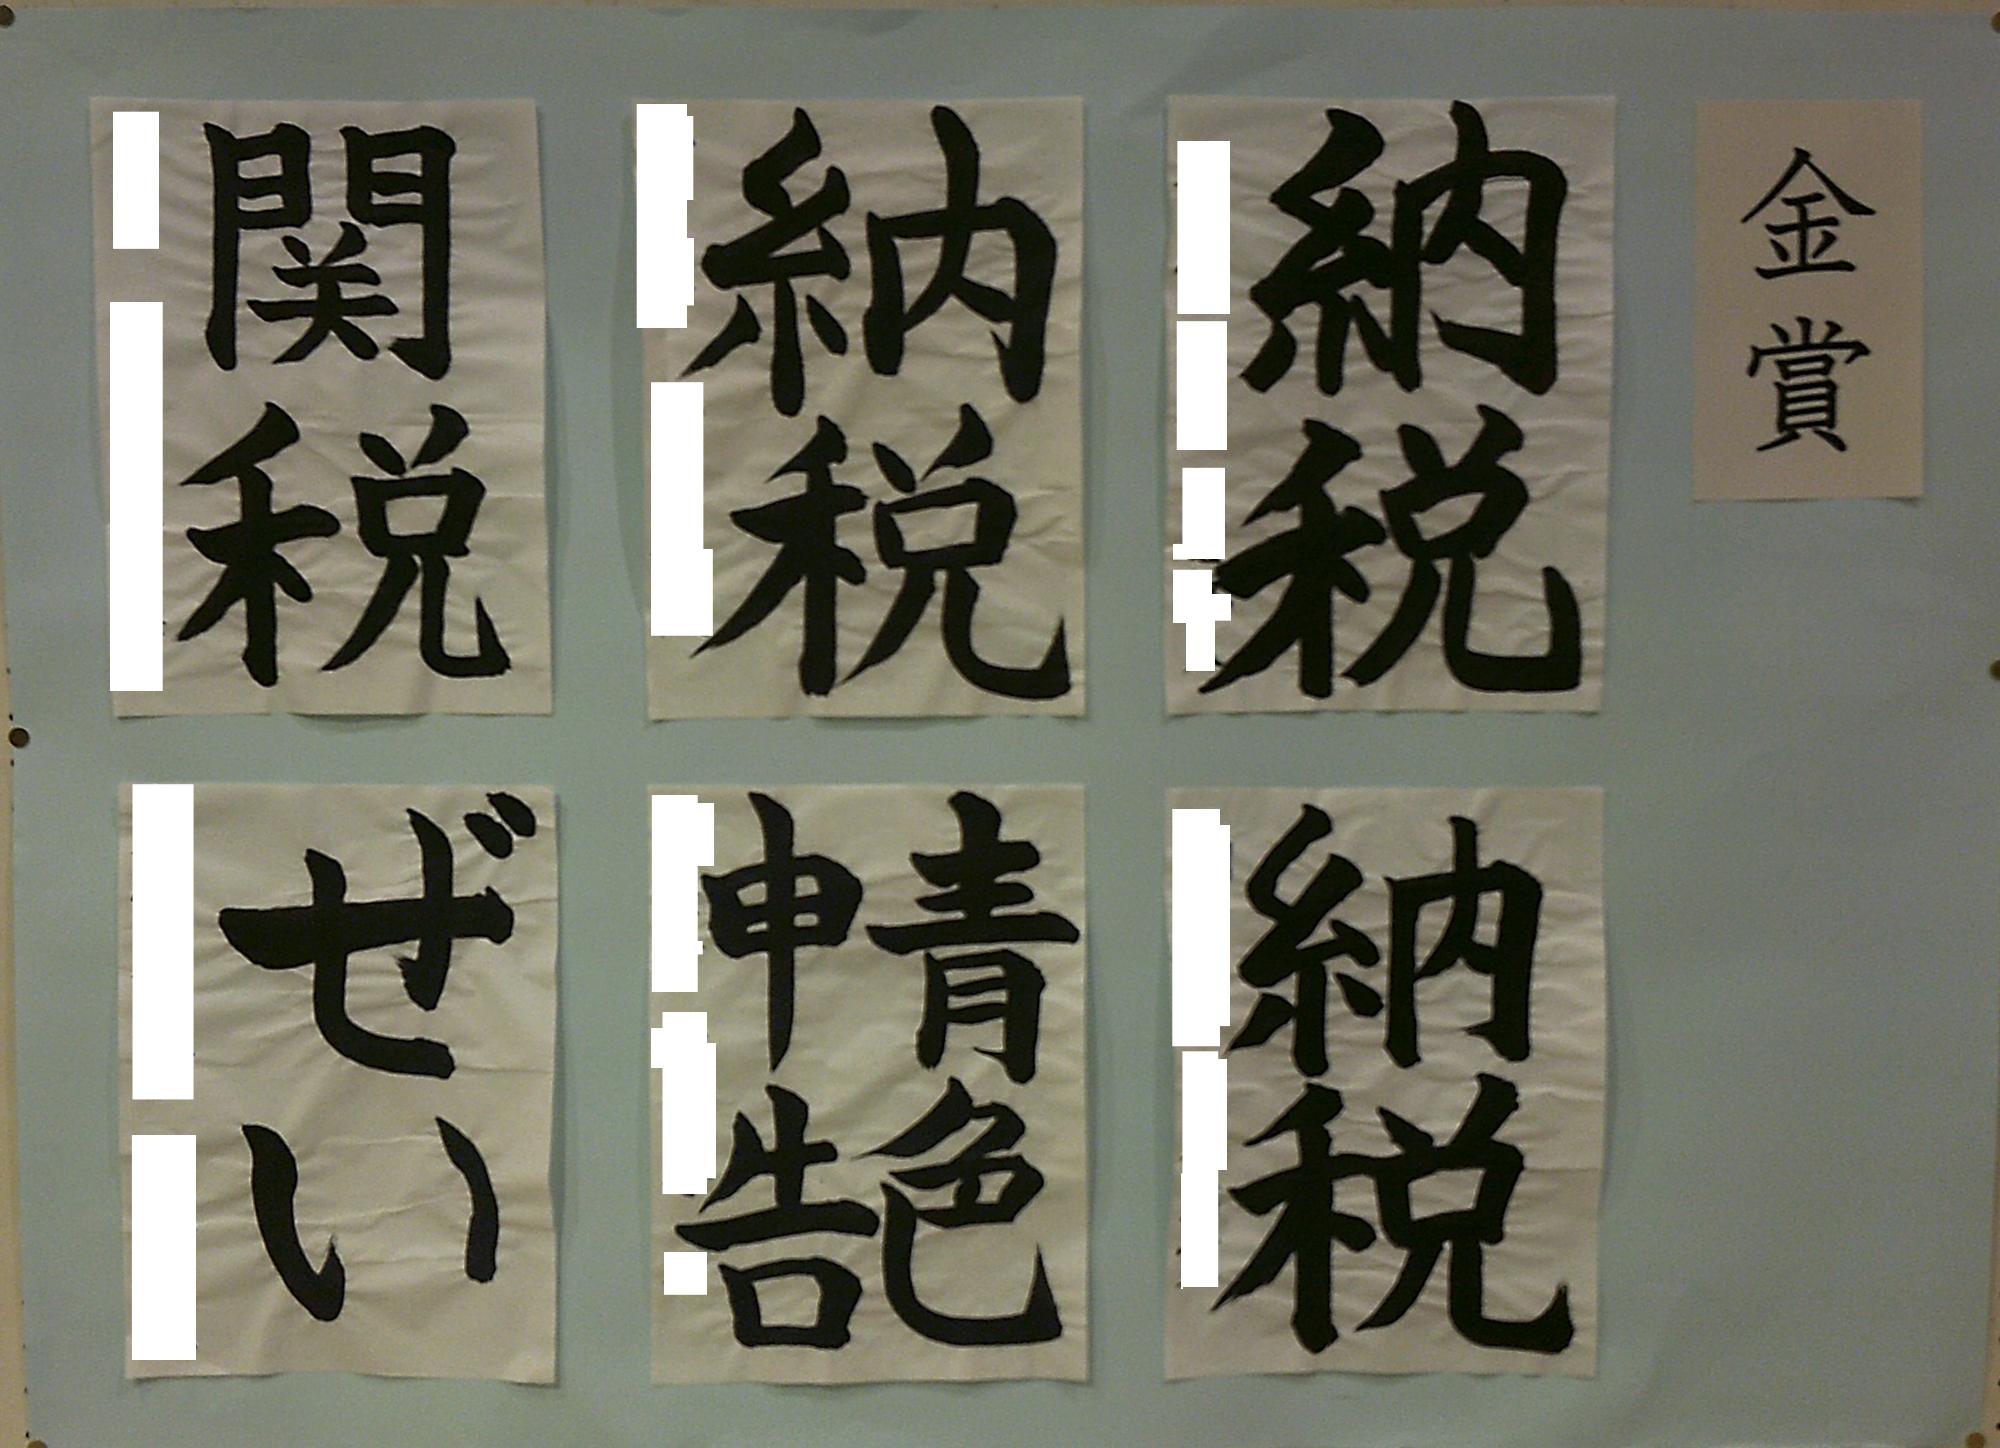 金賞
納税
納税
関税
納税
青色
申告
ぜい